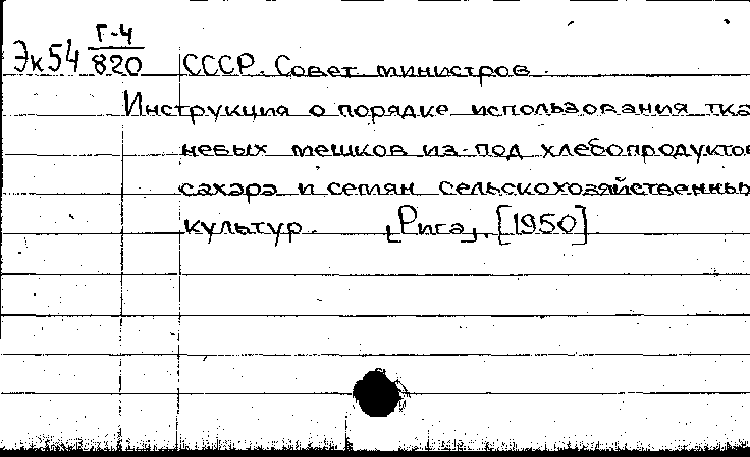 Г-4
Эк54 820 СССР. Совет министров.
Инструкция о порядке использования тка
невых мешков из-под хлебопродуктов
сахара и семян сельскохозяйственны
культур. [Рига]. [1950]